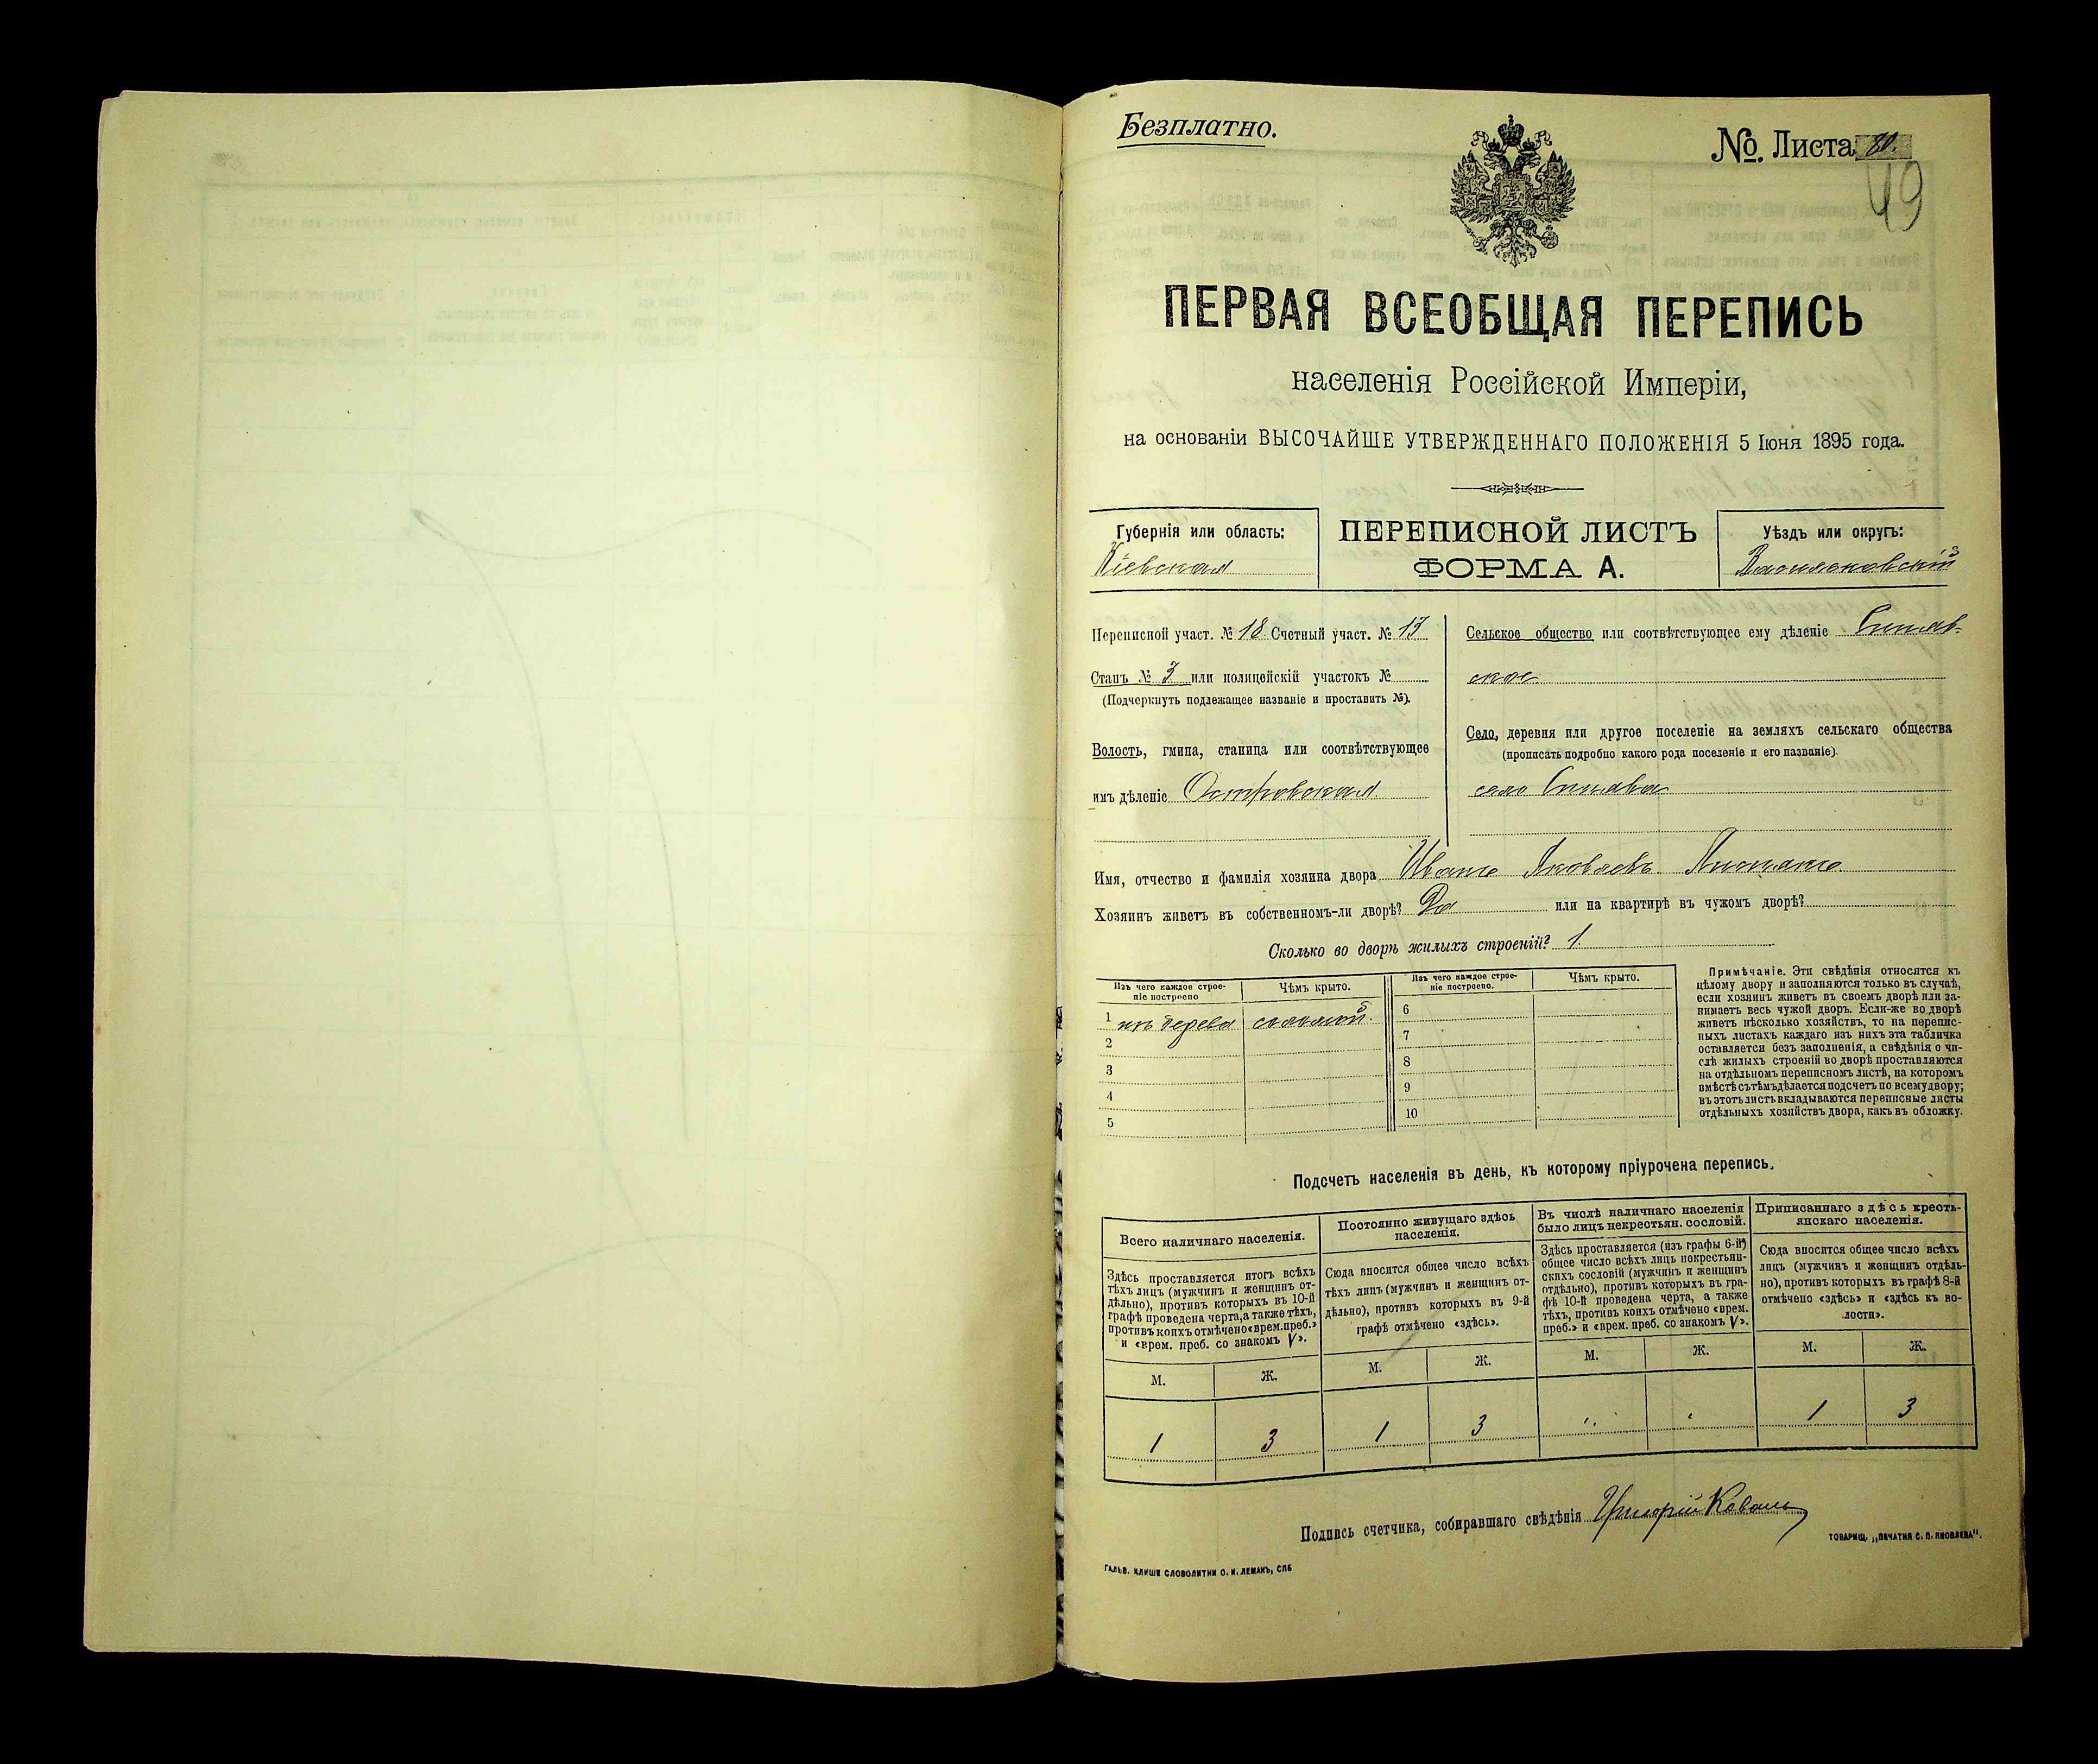 Безплатно.
№. Листа 80.
49
ПЕРВАЯ ВСЕОБЩАЯ ПЕРЕПИСЬ
населенія Россійской Имперіи,
на основаніи ВЫСОЧАЙШЕ УТВЕРЖДЕННАГО ПОЛОЖЕНІЯ 5 Іюня 1895 года.
Губернія или область:
Кіевская
ПЕРЕПИСНОЙ ЛИСТЪ
ФОРМА А.
Уѣздъ или округъ:
Васильковскій
Переписной участ. № 18 Счетный участ. № 13
Станъ № 3 или полицейскій участокъ №
(Подчеркнуть подлежащее названіе и проставить №).
Волость, гмина, станица или соотвѣтствующее
имъ дѣленіе Островская
Сельское общество или соотвѣтствующее ему дѣленіе Синяв-
ское
Село, деревня или другое поселеніе на земляхъ сельскаго общества
(прописать подробно какого рода поселеніе и его названіе).
село Синява
Имя, отчество и фамилія хозяина двора Иванъ Яковлевъ
Хозяинъ живетъ въ собственномъ-ли дворѣ? Да или на квартирѣ въ чужомъ дворѣ?
Сколько во дворѣ жилыхъ строеній? 1.
Изъ чего каждое строе-
ніе построено
Чѣмъ крыто.
Изъ чего каждое строе-
ніе построено.
Чѣмъ крыто.
1 изъ дерева соломой.
2
3
4
5
6
7
8
9
10
Примѣчаніе. Эти свѣдѣнія относятся къ
цѣлому двору и заполняются только въ случаѣ,
если хозяинъ живетъ въ своемъ дворѣ или за-
нимаетъ весь чужой дворъ. Если-же во дворѣ
живетъ нѣсколько хозяйствъ, то на перепис-
ныхъ листахъ каждаго изъ нихъ эта табличка
оставляется безъ заполненія, а свѣдѣнія о чи-
слѣ жилыхъ строеній во дворѣ проставляются
на отдѣльномъ переписномъ листѣ, на которомъ
вмѣстѣ съ тѣмъ дѣлается подсчетъ по всему двору;
въ этотъ листъ вкладываются переписные листы
отдѣльныхъ хозяйствъ двора, какъ въ обложку.
Подсчетъ населенія въ день, къ которому пріурочена перепись.
Всего наличнаго населенія.
Здѣсь проставляется итогъ всѣхъ
тѣхъ лицъ (мужчинъ и женщинъ от-
дѣльно), противъ которыхъ въ 10-й
графѣ проведена черта, а также тѣхъ,
противъ коихъ отмѣчено «врем. преб.»
и «врем. преб. со знакомъ V».
Постоянно живущаго здѣсь
населенія.
Сюда вносится общее число всѣхъ
тѣхъ лицъ (мужчинъ и женщинъ от-
дѣльно), противъ которыхъ въ 9-й
графѣ отмѣчено «здѣсь».
Въ числѣ наличнаго населенія
было лицъ некрестьян. сословій.
Здѣсь проставляется (изъ графы 6-й)
общее число всѣхъ лицъ некрестьян-
скихъ сословій (мужчинъ и женщинъ
отдѣльно), противъ которыхъ въ гра-
фѣ 10-й проведена черта, а также
тѣхъ, противъ коихъ отмѣчено «врем.
преб.» и «врем. преб. со знакомъ V».
Приписаннаго здѣсь кресть-
янскаго населенія.
Сюда вносится общее число всѣхъ
лицъ (мужчинъ и женщинъ отдѣль-
но), противъ которыхъ въ графѣ 8-й
отмѣчено «здѣсь» и «здѣсь къ во-
лости».
М. Ж. М. Ж. М. Ж. М. Ж.
1 3 1 3 " " 1 3
Подпись счетчика, собиравшаго свѣдѣнія Григорій Коваль
ТОВАРИЩ. „ПЕЧАТНЯ С. П. ЯКОВЛЕВА".
ГАЛЬВ. КЛИШЕ СЛОВОЛИТНИ О. И. ЛЕМАНЪ, СПБ